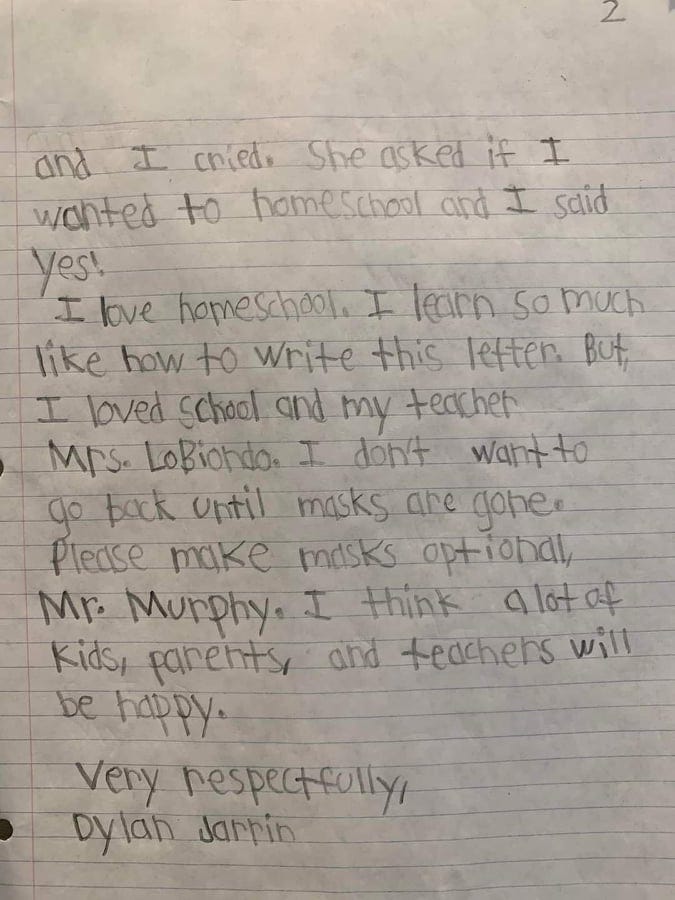 2
and I cried. She asked if I
wanted to homeschool and I said
Yes!
I love homeschool. I learn so much
like how to write this letter. But,
I loved school and my teacher
Mrs. LoBiondo. I don't want to
go back until masks are gone.
Please make masks optional,
Mr. Murphy. I think a lot of
kids, parents, and teachers will
be happy.
Very respectfully,
Dylan Jarrin